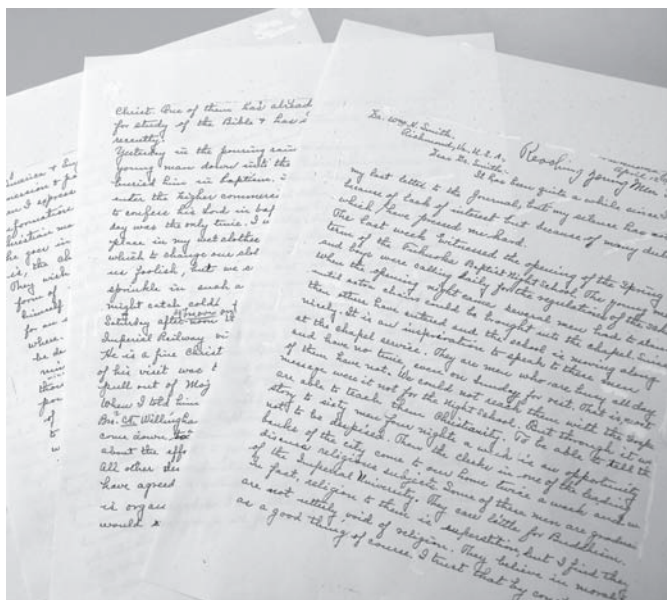 America &
mission &
When I
information
Christian
he goes in
is, the
They wish
form of
himself
for an
where
be de
min
those
of
Christ. One of them has already
for study of the Bible & has
recently.
Yesterday in the pouring rain
young man down into the
buried him in baptism.
under the higher
to confess his Lord in
day was the only time. I
place in my wet clothes
which to change
us foolish, but we
sprinkle in such a
might catch cold!
Saturday afternoon
Imperial Railway
He is a fine Christ
of his visit was
pull out of Moj
When I told him
Bro. Willingha
come down,
about the
All other
have agreed
is
would
Reaching Young Men
April
Dr. Wm. H. Smith,
Richmond, Va. U.S.A.
Dear Dr. Smith:
It has been quite a while since
my last letter to the Journal, but my silence has not
because of lack of interest but because of many duties
which have pressed me hard.
The last week witnessed the opening of the Spring
term of the Fukuoka Baptist Night School. The young men
and boys were calling daily for the regulations of the school
When the opening night came several men had to stand
until extra chairs could be brought into the chapel. Since
then others have entered and the school is moving along
nicely. It is an inspiration to speak to these men
at the chapel service. They are men who are busy all day
and have no time even on Sunday for rest. That is most
of them have not. We could not reach them with the Gospel
message were it not for the Night School. But through it we
are able to teach them Christianity. To be able to tell the
story to sixty men four nights a week is an opportunity
not to be despised. Then the clerks in one of the leading
banks of the city come to our home twice a week and we
discuss religious subjects. Some of these men are graduates
of the Imperial University. They care little for Buddhism.
In fact, religion to them is superstition, but I find they
are not utterly void of religion. They believe in morals
as a good thing of course. I trust that by